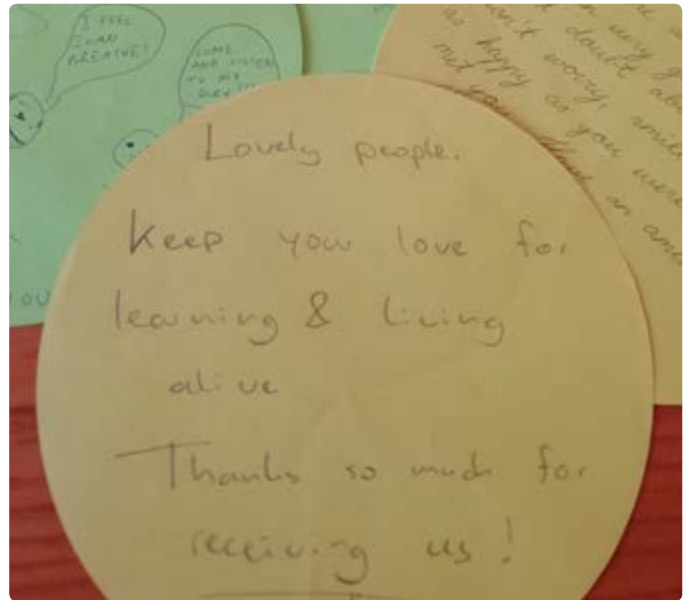 I FEEL
I CAN
BREATHE!
COME
AND LISTEN
TO MY
Lovely people.
Keep your love for
learning & living
alive
Thanks so much for
receiving us!
very
doubt
worry, smile
as happy as you were
met
an